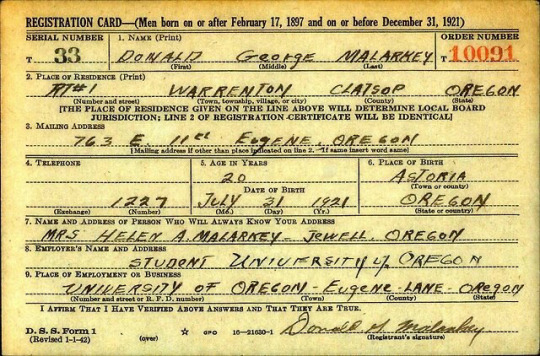 REGISTRATION CARD—(Men born on or after February 17, 1897 and on or before December 31, 1921)
SERIAL NUMBER 1. NAME (Print) ORDER NUMBER
T 33 DONALD GEORGE MALARKEY T 10091
(First) (Middle) (Last)
2. PLACE OF RESIDENCE (Print)
RT#1 WARRENTON CLATSOP OREGON
(Number and street) (Town, township, village, or city) (County) (State)
[THE PLACE OF RESIDENCE GIVEN ON THE LINE ABOVE WILL DETERMINE LOCAL BOARD
JURISDICTION; LINE 2 OF REGISTRATION CERTIFICATE WILL BE IDENTICAL]
3. MAILING ADDRESS
763 E. 11th EUGENE, OREGON
[Mailing address if other than place indicated on line 2. If same insert word same]
4. TELEPHONE 5. AGE IN YEARS 6. PLACE OF BIRTH
20 ASTORIA
DATE OF BIRTH (Town or county)
1227 JULY 31 1921 OREGON
(Exchange) (Number) (Mo.) (Day) (Yr.) (State or country)
7. NAME AND ADDRESS OF PERSON WHO WILL ALWAYS KNOW YOUR ADDRESS
MRS HELEN A. MALARKEY - JEWELL, OREGON
8. EMPLOYER'S NAME AND ADDRESS
STUDENT UNIVERSITY of OREGON
9. PLACE OF EMPLOYMENT OR BUSINESS
UNIVERSITY OF OREGON - EUGENE - LANE - OREGON
(Number and street or R. F. D. number) (Town) (County) (State)
I AFFIRM THAT I HAVE VERIFIED ABOVE ANSWERS AND THAT THEY ARE TRUE.
D. S. S. Form 1 GPO 16—21630-1 Donald G. Malarkey
(Revised 1-1-42) (over) (Registrant's signature)